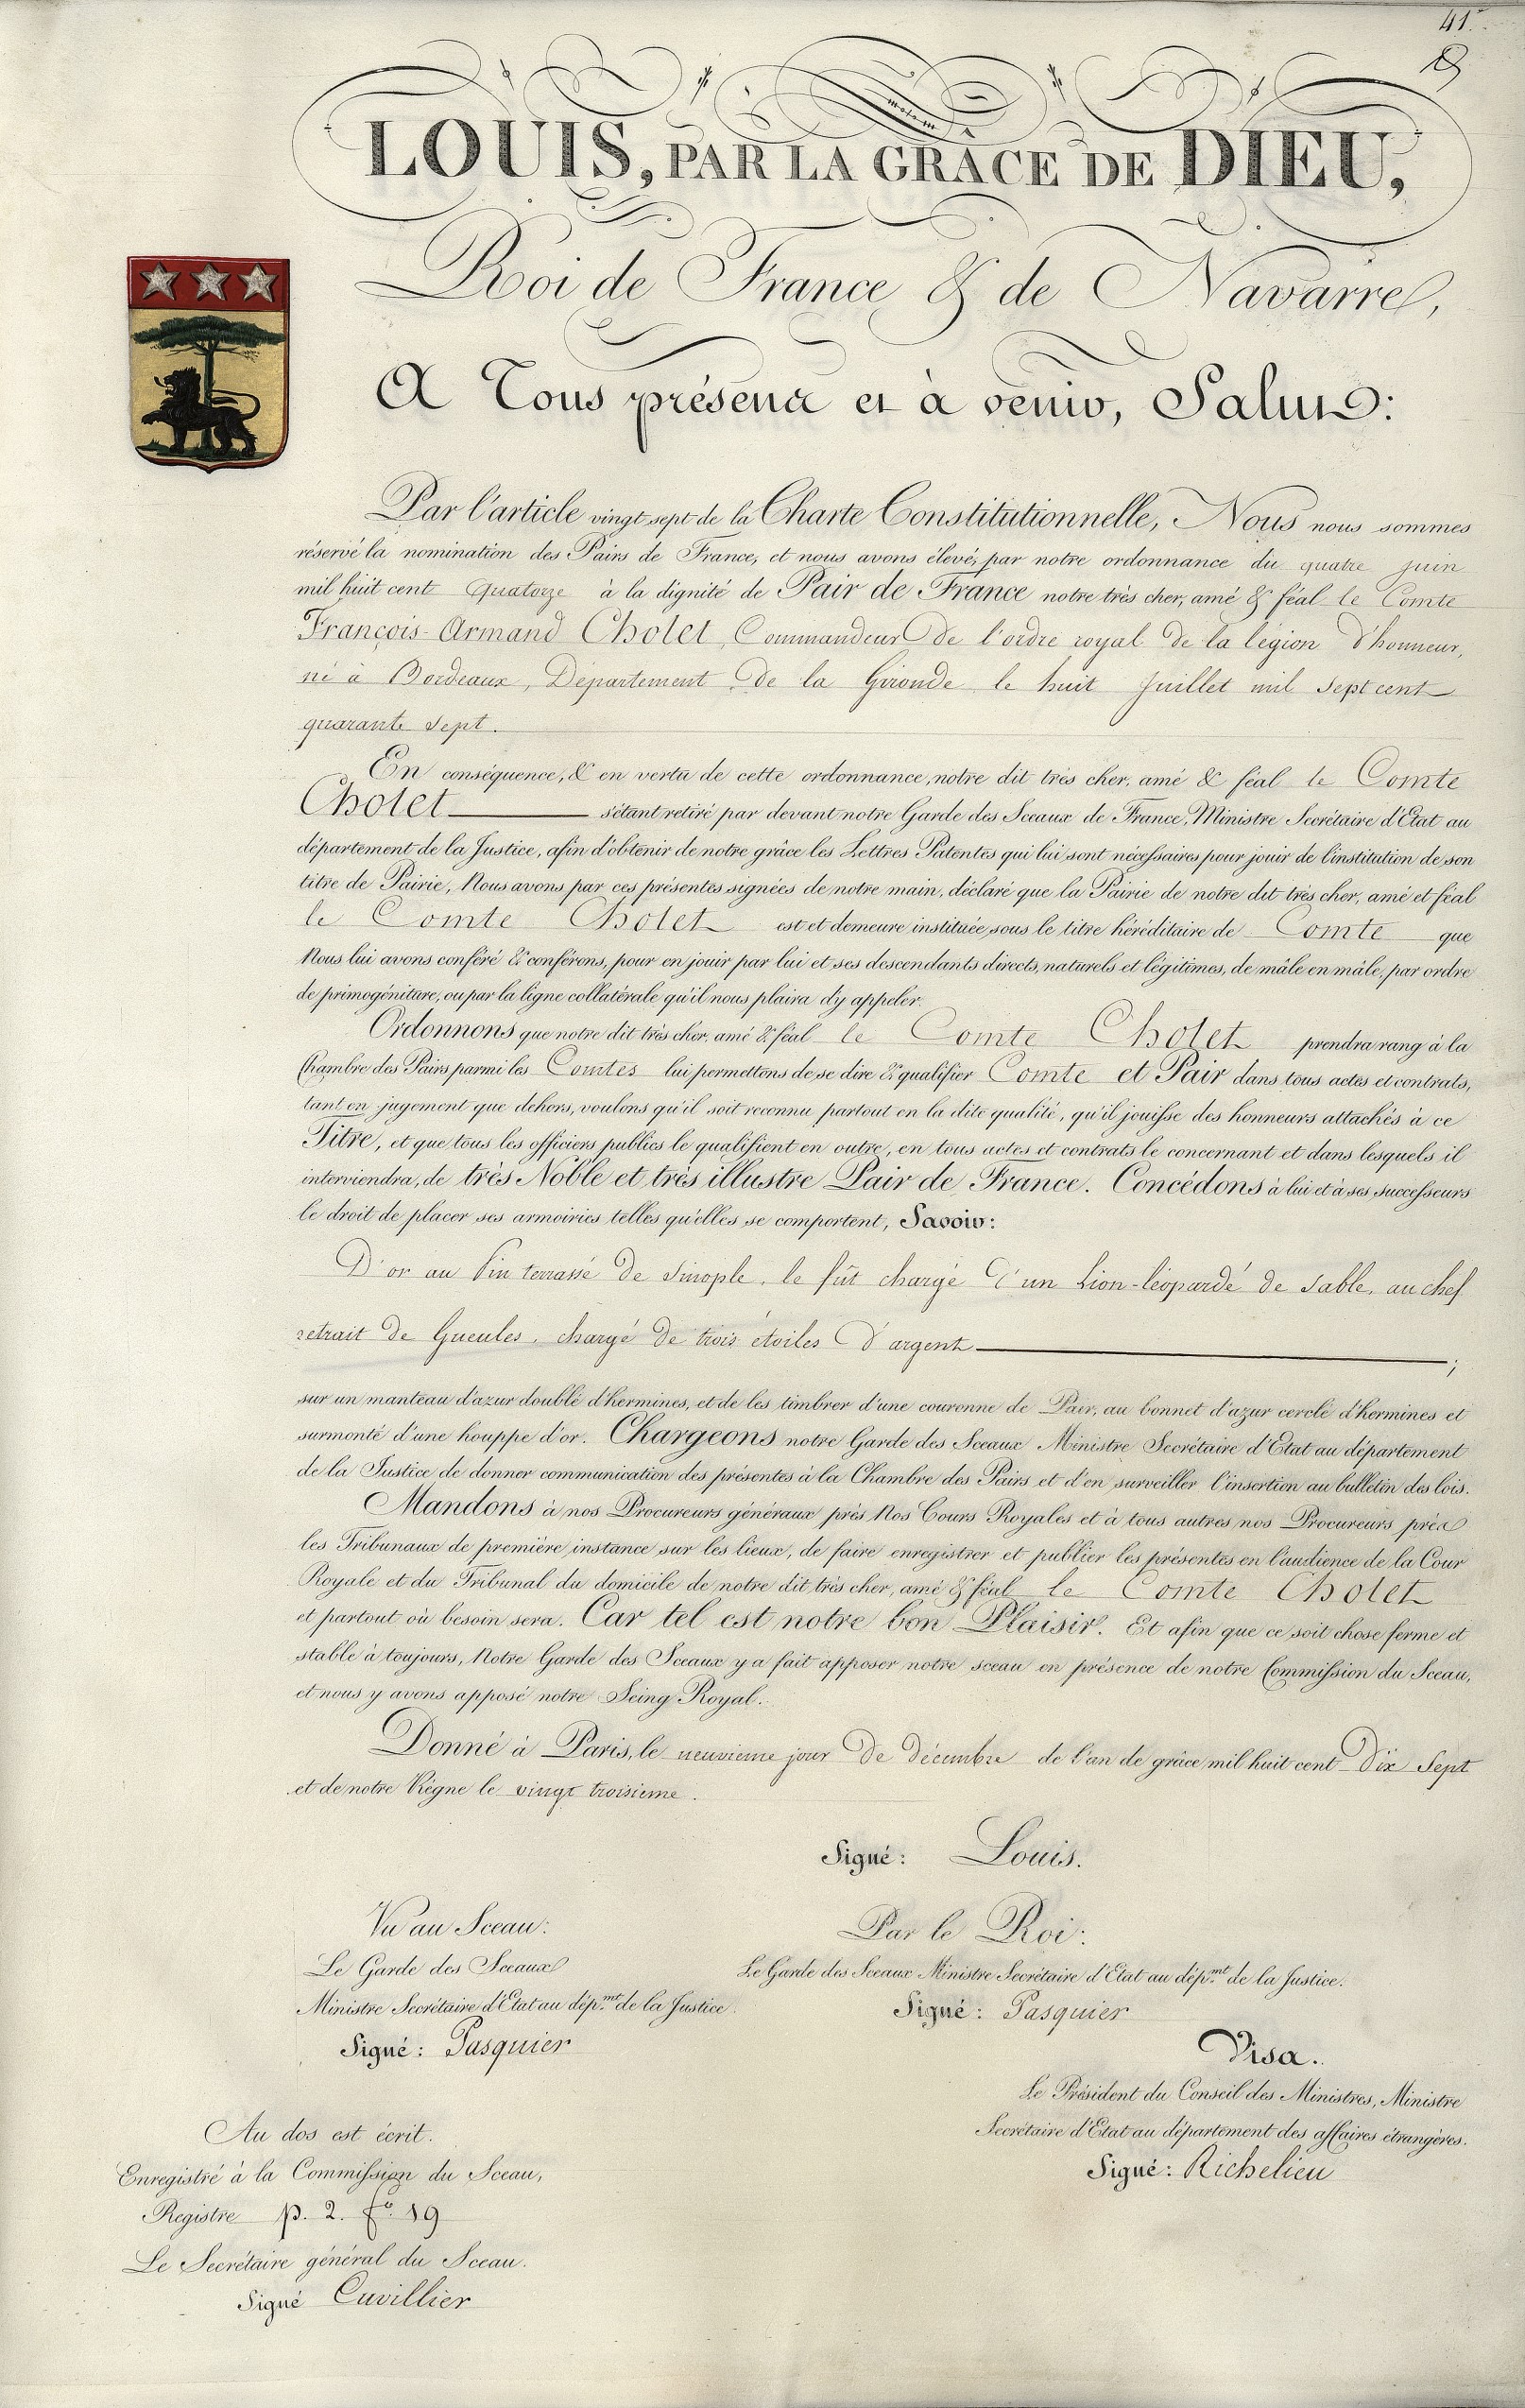 41.
LOUIS, PAR LA GRÂCE DE DIEU,
Roi de France & de Navarre,
A Tous présens et à venir, Salut:
Par l'article vingt sept de la Charte Constitutionnelle, Nous nous sommes
réservé la nomination des Pairs de France, et nous avons élevé, par notre ordonnance du quatre juin
mil huit cent Quatorze à la dignité de Pair de France notre très cher, amé & féal le Comte
François-Armand Cholet, Commandeur de l'ordre royal de la légion d'honneur,
né à Bordeaux, Département de la Gironde le huit Juillet mil sept cent
quarante sept.
En conséquence, & en vertu de cette ordonnance, notre dit très cher, amé & féal le Comte
Cholet s'étant retiré par devant notre Garde des Sceaux de France, Ministre Secrétaire d'Etat au
département de la Justice, afin d'obtenir de notre grâce les Lettres Patentes qui lui sont nécessaires pour jouir de l'institution de son
titre de Pairie, Nous avons par ces présentes signées de notre main, déclaré que la Pairie de notre dit très cher, amé et féal
le Comte Cholet est et demeure instituée sous le titre héréditaire de Comte que
Nous lui avons conféré & conférons, pour en jouir par lui et ses descendants directs, naturels et légitimes, de mâle en mâle, par ordre
de primogéniture, ou par la ligne collatérale qu'il nous plaira d'y appeler.
Ordonnons que notre dit très cher, amé & féal le Comte Cholet prendra rang à la
Chambre des Pairs parmi les Comtes lui permettons de se dire & qualifier Comte et Pair dans tous actes et contrats,
tant en jugement que dehors, voulons qu'il soit reconnu partout en la dite qualité, qu'il jouisse des honneurs attachés à ce
Titre, et que tous les officiers publics le qualifient en outre, en tous actes et contrats le concernant et dans lesquels il
interviendra, de très Noble et très illustre Pair de France. Concédons à lui et à ses successeurs
le droit de placer ses armoiries telles qu'elles se comportent, Savoir:
D'or au Pin terrassé de Sinople, le fût chargé d'un Lion-léopardé de Sable, au chef
retrait de Gueules, chargé de trois étoiles d'argent ;
sur un manteau d'azur doublé d'hermines, et de les timbrer d'une couronne de Pair, au bonnet d'azur cerclé d'hermines et
surmonté d'une houppe d'or. Chargeons notre Garde des Sceaux Ministre Secrétaire d'Etat au département
de la Justice de donner communication des présentes à la Chambre des Pairs et d'en surveiller l'insertion au bulletin des lois.
Mandons à nos Procureurs généraux près Nos Cours Royales et à tous autres nos Procureurs près
les Tribunaux de première instance sur les lieux, de faire enregistrer et publier les présentes en l'audience de la Cour
Royale et du Tribunal du domicile de notre dit très cher, amé & féal le Comte Cholet
et partout où besoin sera. Car tel est notre bon Plaisir. Et afin que ce soit chose ferme et
stable à toujours, Notre Garde des Sceaux y a fait apposer notre sceau en présence de notre Commission du Sceau,
et nous y avons apposé notre Seing Royal.
Donné à Paris, le neuvieme jour de décembre de l'an de grâce mil huit cent Dix Sept
et de notre Règne le vingt troisieme.
Signé: Louis.
Vu au Sceau:
Le Garde des Sceaux
Ministre Secrétaire d'Etat au dép.mt de la Justice.
Signé: Pasquier
Par le Roi:
Le Garde des Sceaux Ministre Secrétaire d'Etat au dép.mt de la Justice.
Signé: Pasquier
Visa.
Le Président du Conseil des Ministres, Ministre
Secrétaire d'Etat au département des affaires étrangères.
Signé: Richelieu
Au dos est écrit.
Enregistré à la Commission du Sceau,
Registre p. 2. fo. 19
Le Secrétaire général du Sceau.
Signé Cuvillier